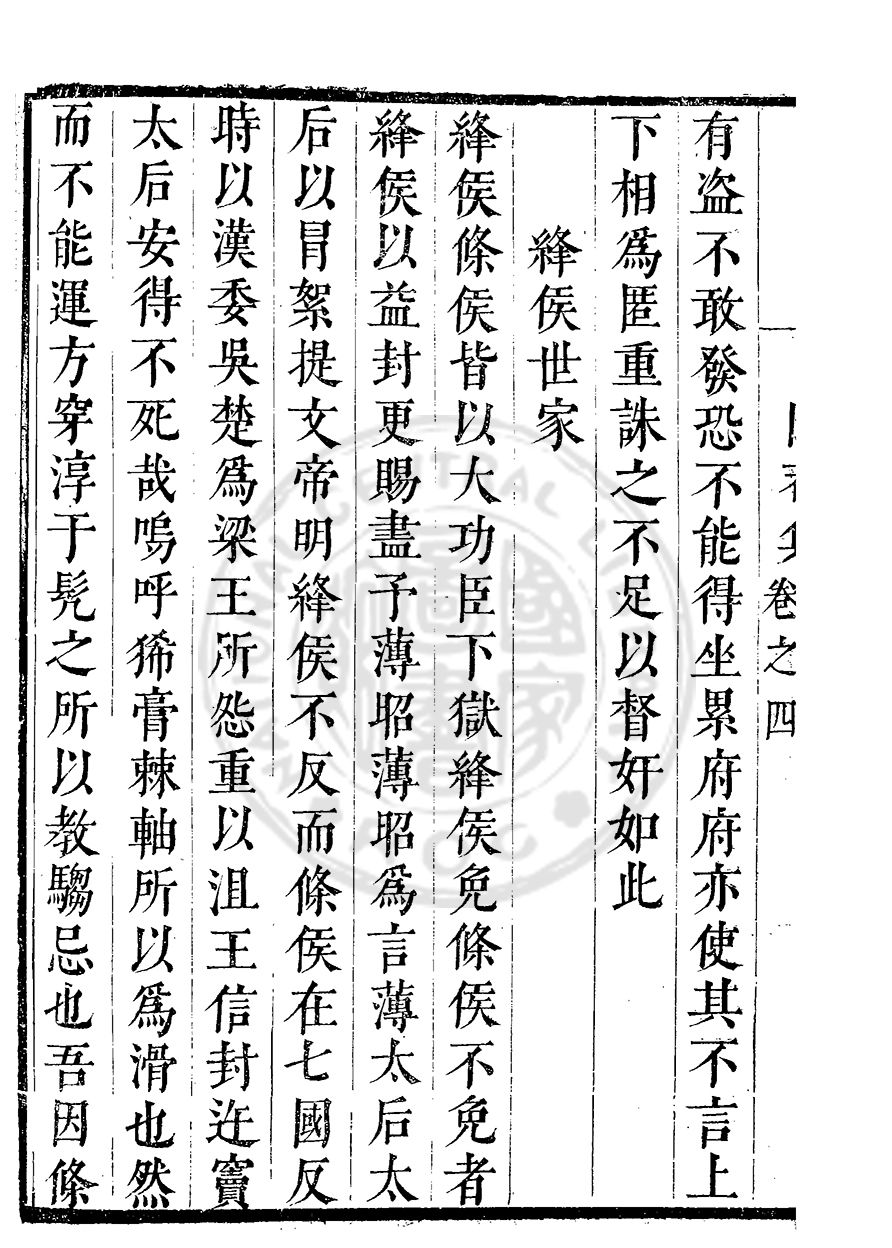 卷之四
有盗不敢發恐不能得坐累府府亦使其不言上
下相爲匿重誅之不足以督奸如此
絳侯世家
絳侯條侯皆以大功臣下獄絳侯免條侯不免者
絳侯以益封更賜盡予薄昭薄昭爲言薄太后太
后以冒絮提文帝明絳侯不反而條侯在七國反
時以漢委吳楚爲梁王所怨重以沮王信封迕竇
太后安得不死哉嗚呼狶膏棘軸所以爲滑也然
而不能運方穿淳于髡之所以教騶忌也吾因條